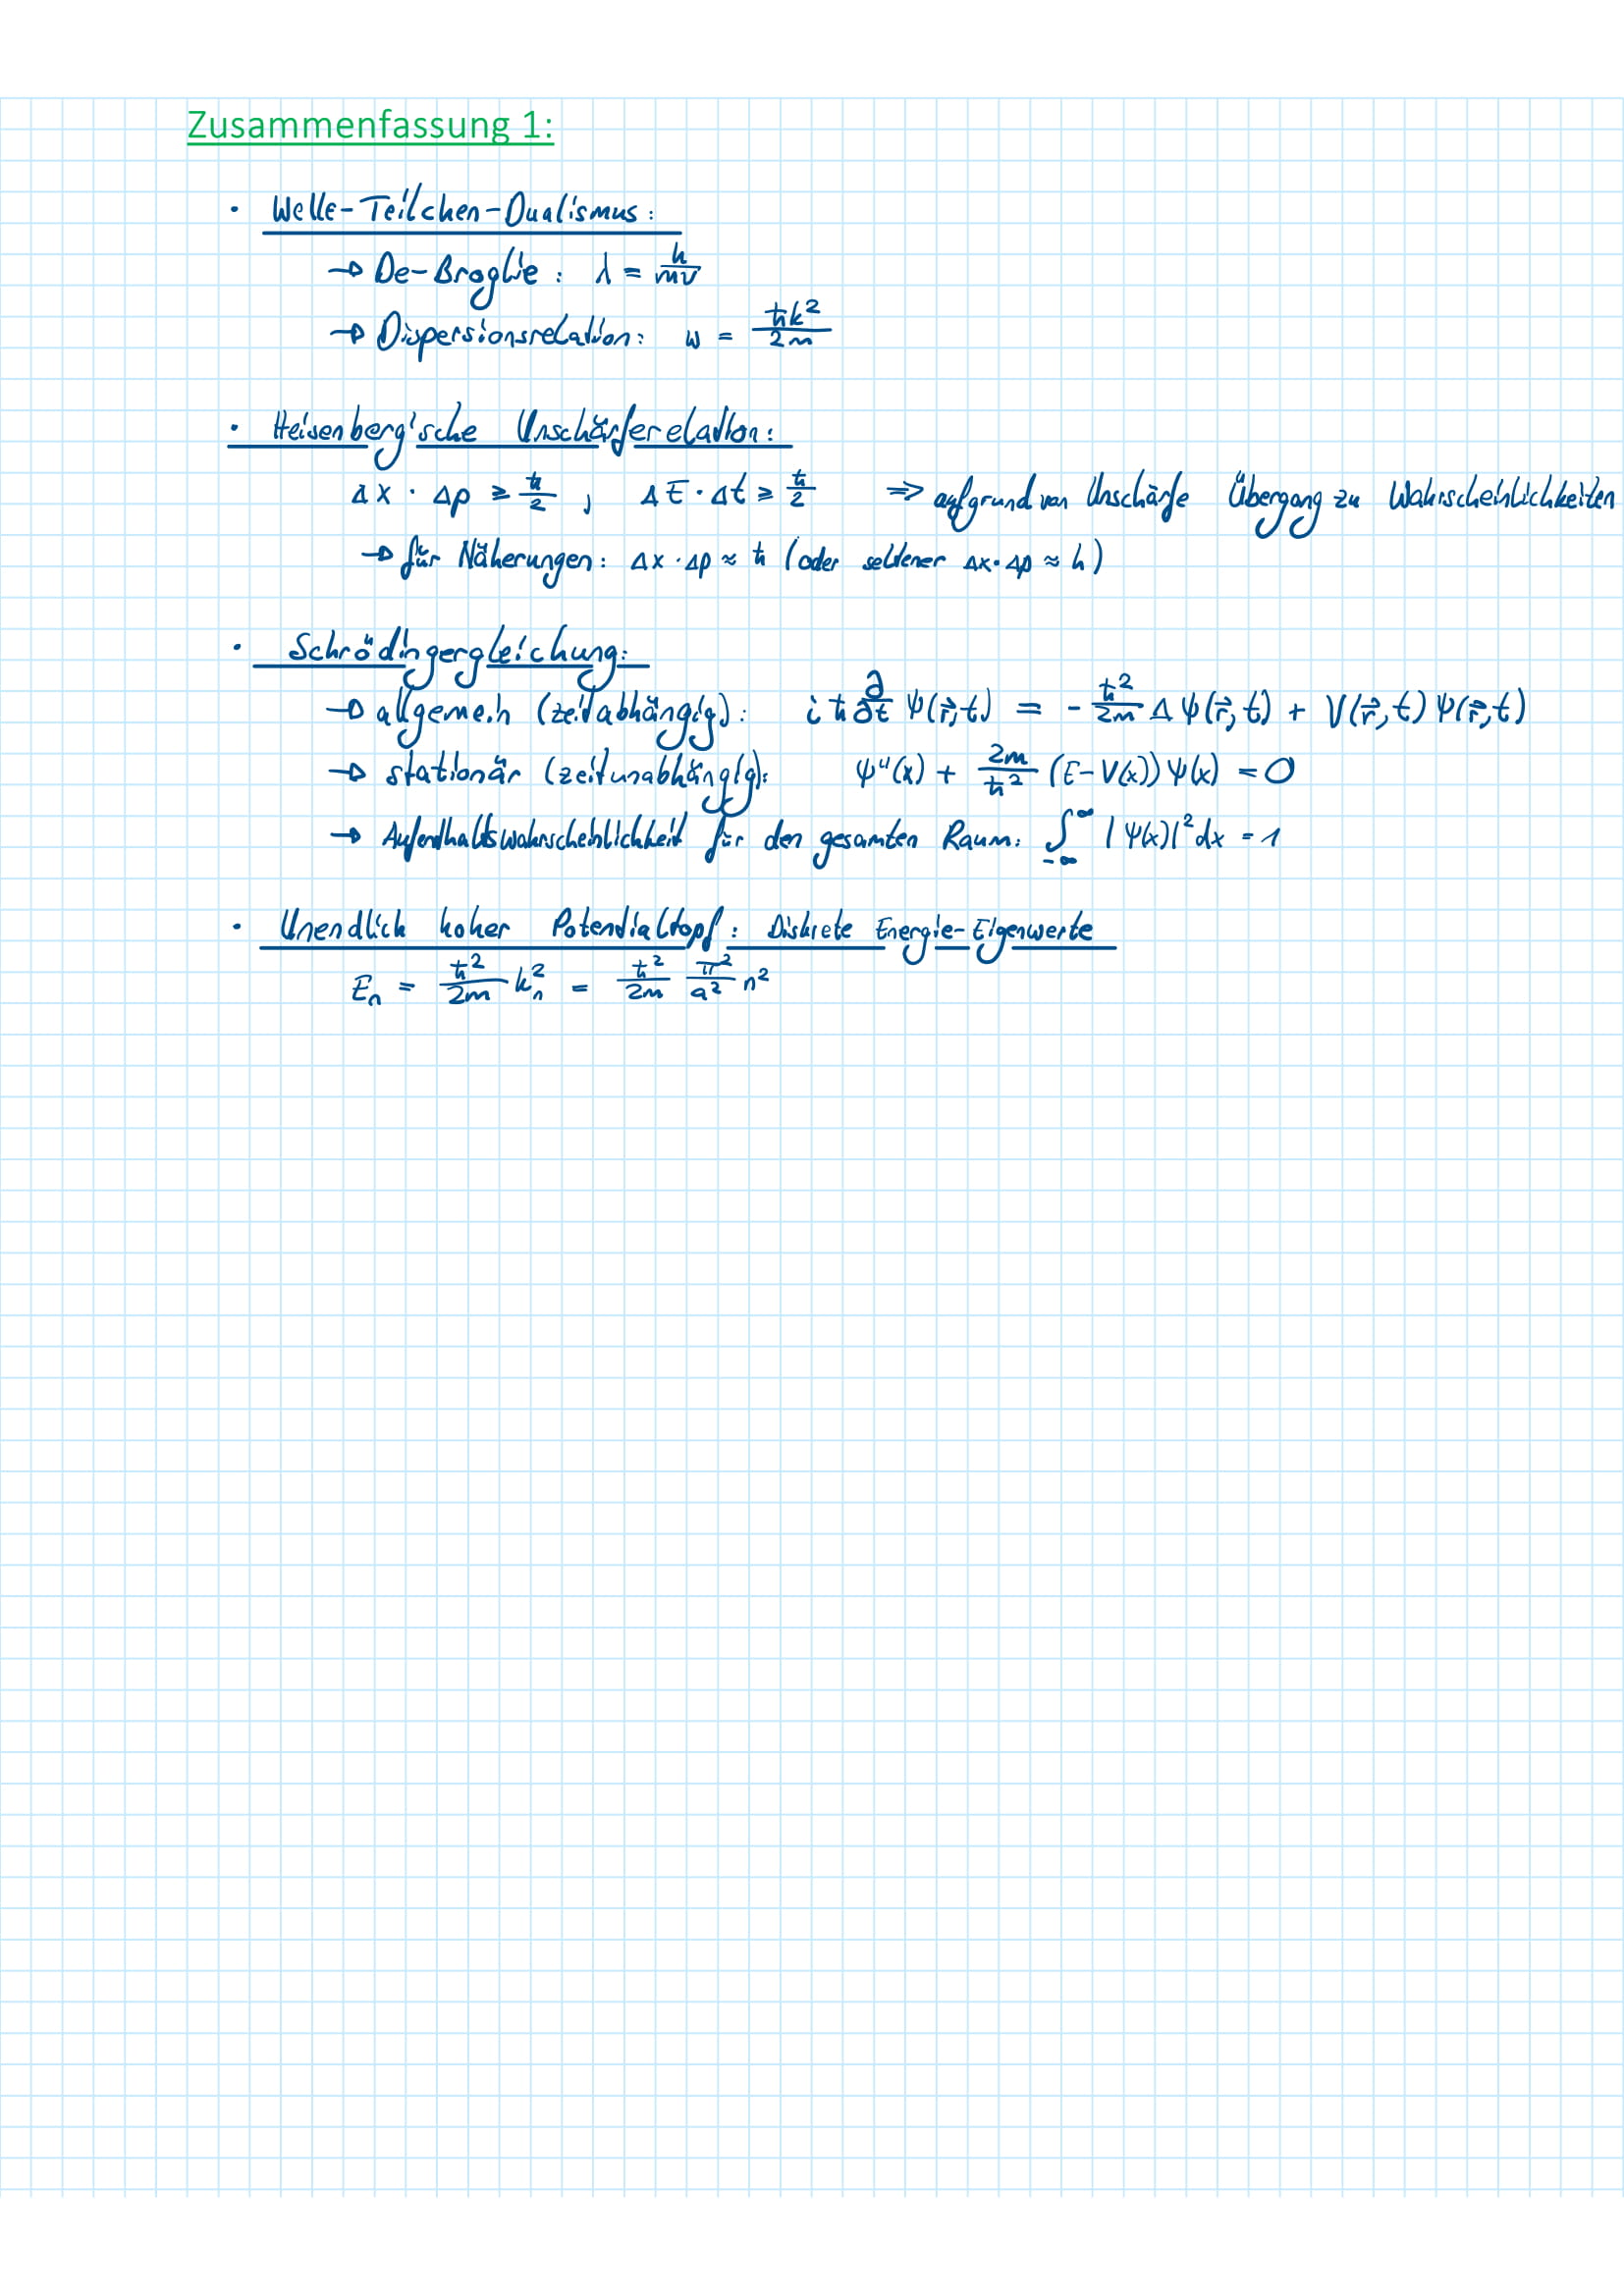 Zusammenfassung 1:
· Welle-Teilchen-Dualismus:
→ De-Broglie: λ = h/mv
→ Dispersionsrelation: ω = ħk²/2m
· Heisenberg'sche Unschärferelation:
Δx · Δp ≥ ħ/2 , ΔE · Δt ≥ ħ/2 ⇒ aufgrund von Unschärfe Übergang zu Wahrscheinlichkeiten
→ für Näherungen: Δx · Δp ≈ ħ (oder seltener Δx · Δp ≈ h)
· Schrödingergleichung:
→ allgemein (zeitabhängig): iħ ∂/∂t ψ(r⃗,t) = - ħ²/2m Δ ψ(r⃗,t) + V(r⃗,t) ψ(r⃗,t)
→ stationär (zeitunabhängig): ψ''(x) + 2m/ħ² (E - V(x)) ψ(x) = 0
→ Aufenthaltswahrscheinlichkeit für den gesamten Raum: ∫_{-∞}^{∞} |ψ(x)|² dx = 1
· Unendlich hoher Potentialtopf: Diskrete Energie-Eigenwerte
E_n = ħ²/2m k_n² = ħ²/2m π²/a² n²